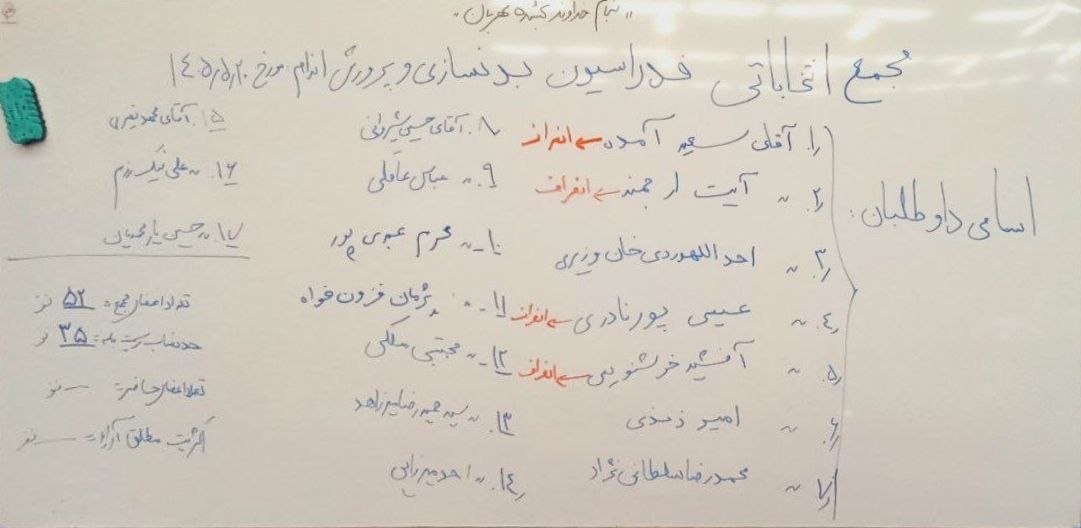 "بنام خداوند بخشنده مهربان"
مجمع انتخاباتی فدراسیون بدنسازی و پرورش اندام مورخ ۱۴۰۵/۵/۲۰
اسامی داوطلبان:
۱. آقای سعید آمده ← انصراف
۲. ~ آیت ارجمند ← انصراف
۳. ~ احد اللهوردی خان وزیری
۴. ~ عیسی پورنادری ← انصراف
۵. ~ آفشید خرشنویس ← انصراف
۶. ~ امیر زندی
۷. ~ محمدرضا سلطانی نژاد
۸. آقای حسین شیروانی
۹. ~ عباس عاملی
۱۰. ~ محرم عیوی پور
۱۱. ~ پژمان فزون خواه
۱۲. ~ مجتبی ملکی
۱۳. ~ سید حمیدرضا میرزاهد
۱۴. ~ احد میرزایی
۱۵. آقای محمود نفری
۱۶. ~ علی نیک رزم
۱۷. ~ حسین یارمحمدیان
تعداد اعضای مجمع: ۵۲ نفر
حد نصاب رسمیت جلسه: ۳۵ نفر
تعداد اعضای حاضر: — نفر
اکثریت مطلق آراء: — نفر